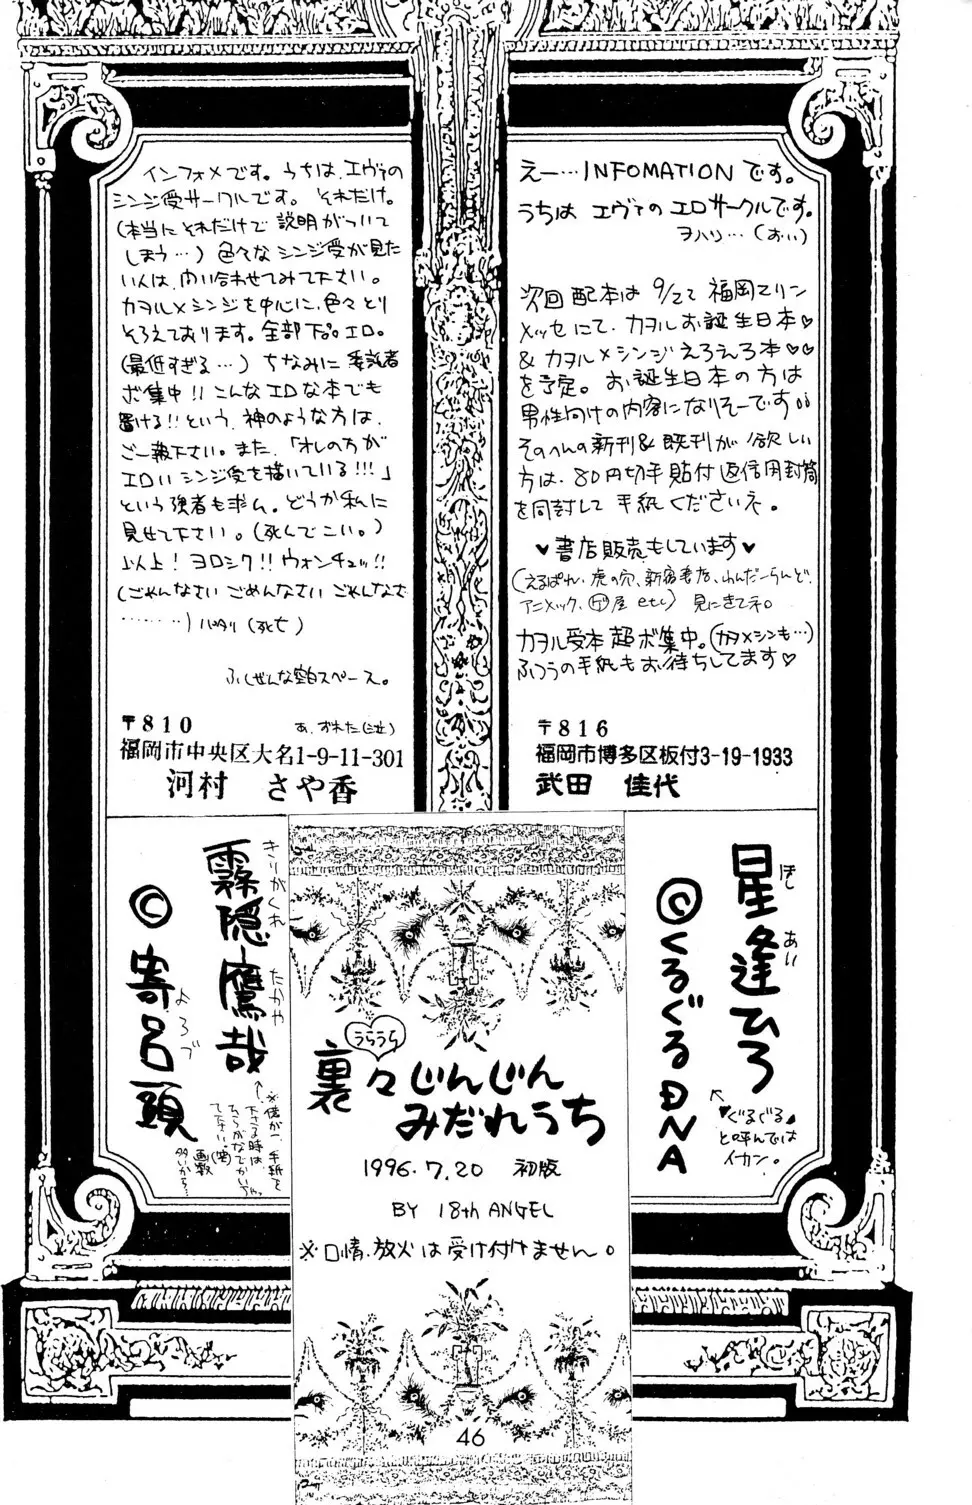 インフォメです。うちは、エヴァの
シンジ受サークルです。それだけ。
(本当にそれだけで説明がついて
しまう…)色々なシンジ受が見た
い人は、問い合わせてみて下さい。
カヲル×シンジを中心に、色々とり
そろえております。全部下品。エロ。
(最低すぎる…)ちなみに委託者
ボ集中!!こんなエロな本でも
置ける!!という、神のような方は、
ご一報下さい。また、「オレの方が
エロいシンジ受を描いている!!!」
という強者も求ム。どうか私に
見せて下さい。(死んでこい。)
以上!ヨロシク!!ウォンチュッ!!
(ごめんなさい ごめんなさい ごめんなさ
………)バタリ(死亡)
ふしぜんな空白スペース。
〒810
あ、ずれた(泣)
福岡市中央区大名1-9-11-301
河村 さや香
えー…INFOMATIONです。
うちは エヴァのエロサークルです。
ヲハリ…(おい)
次回配本は 9/22 福岡マリン
メッセにて、カヲルお誕生日本♡
&カヲル×シンジえろえろ本♡♡
を予定。お誕生日本の方は
男性向けの内容になりそーです
そのへんの新刊&既刊が欲しい
方は、80円切手貼付返信用封筒
を同封して 手紙くださいネ。
♥書店販売もしています♥
(えるぱれ、虎の穴、新宿書店、わんだーらんど、
アニメック、ゲ屋 etc)見にきてネ。
カヲル受本超ボ集中。(カヲ×シンも…)
ふつうの手紙もお待ちしてます♡
〒816
福岡市博多区板付3-19-1933
武田 佳代
星逢ひろ
ほしあい
©くるぐるDNA
♥ぐるぐる♥
と呼んでは
イカン。
霧隠鷹哉
きりがくれ たかや
©寄呂頭
よろづ
※僕が一、手紙を
下さる時は、
ちらがなでかいて
下さい。(笑)
画数
多いから…
うらうら
裏々じんじん
みだれうち
1996.7.20 初版
BY 18th ANGEL
※口情、放火は受け付けません。
46